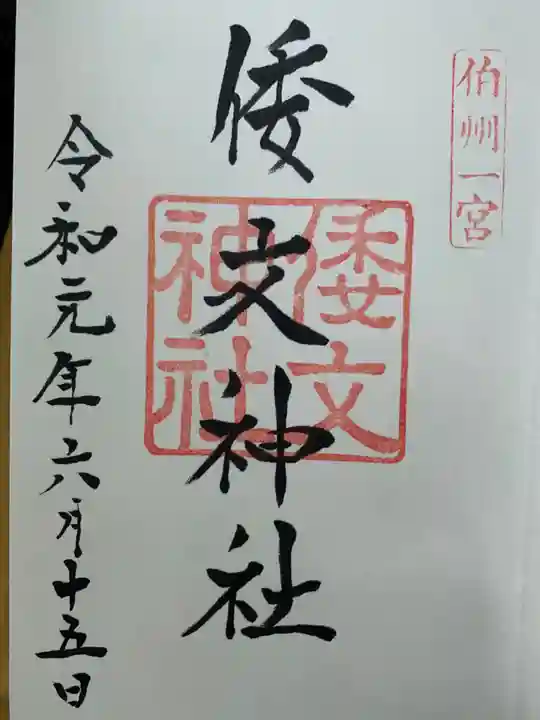 伯州一宮
倭文神社
倭文
神社
令和元年六月十五日